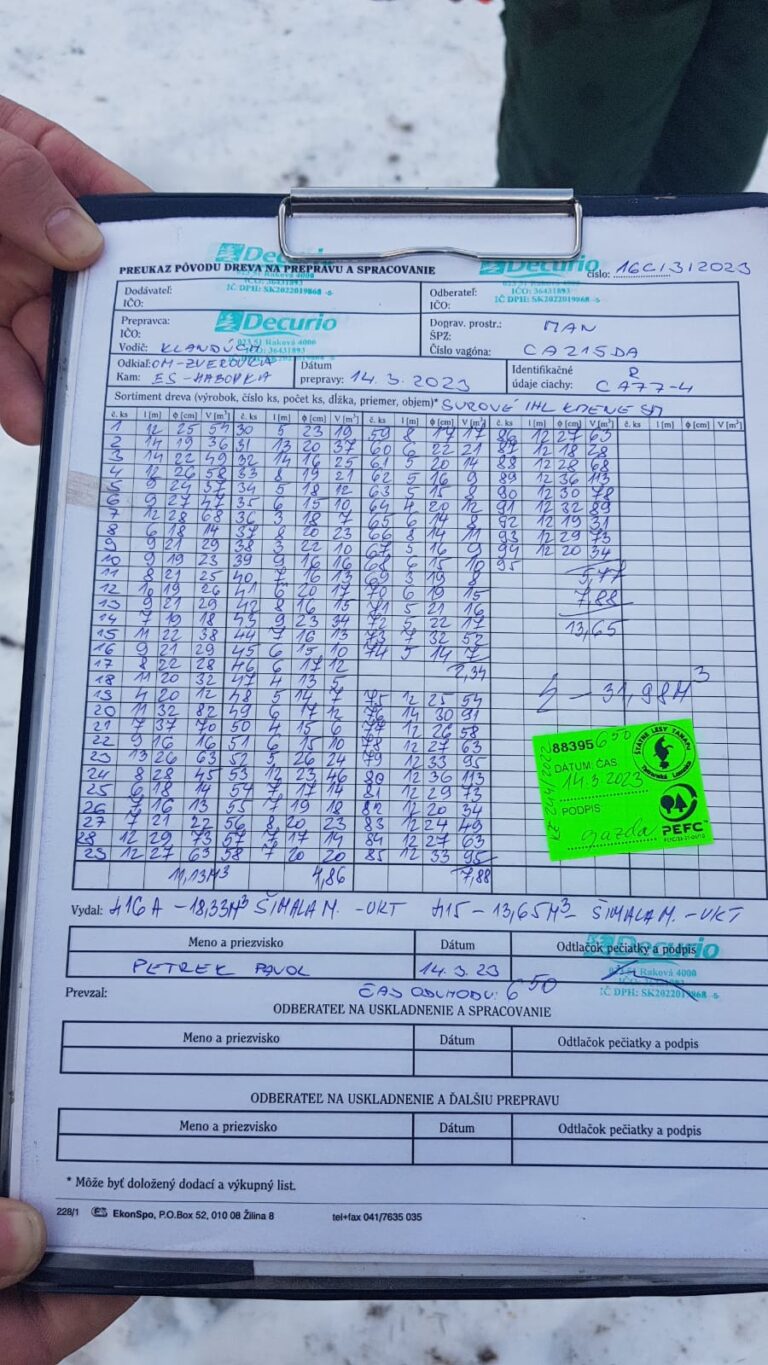 Decurio
023 51 Raková 4000
IČO: 36431893
IČ DPH: SK2022019868
PREUKAZ PÔVODU DREVA NA PREPRAVU A SPRACOVANIE
číslo: 16C/3/2023
Dodávateľ:
IČO:
Odberateľ:
IČO:
Prepravca:
IČO:
Vodič:
Decurio
Doprav. prostr.: MAN
ŠPZ:
Číslo vagóna: CA215DA
Odkiaľ: OM-ZVEROVKA
Kam: ES-HABOVKA
Dátum
prepravy: 14.3.2023
Identifikačné R
údaje ciachy: CA77-4
Sortiment dreva (výrobok, číslo ks, počet ks, dĺžka, priemer, objem)* SUROVÉ IHL KMENE SM
č. ks l [m] ϕ [cm] V [m³] č. ks l [m] ϕ [cm] V [m³] č. ks l [m] ϕ [cm] V [m³] č. ks l [m] ϕ [cm] V [m³] č. ks l [m] ϕ [cm] V [m³]
1 12 25 54 30 5 23 19 59 8 17 17 86 12 27 63
2 14 19 36 31 13 20 37 60 6 22 21 87 12 18 28
3 14 22 49 32 14 16 25 61 5 20 14 88 12 28 68
4 12 26 58 33 8 19 21 62 5 16 9 89 12 36 113
5 9 24 37 34 5 18 12 63 5 15 8 90 12 30 78
6 9 27 47 35 6 15 10 64 4 20 12 91 12 32 89
7 12 28 68 36 3 18 7 65 6 14 8 92 12 19 31
8 6 18 14 37 8 20 23 66 8 14 11 93 12 29 73
9 9 21 29 38 3 22 10 67 5 16 9 94 12 20 34
10 9 19 23 39 9 16 16 68 6 15 10 95
11 8 21 25 40 7 16 13 69 3 19 8
7,88
12 10 19 26 41 6 20 17 70 6 19 15
13 9 21 29 42 8 16 15 71 5 21 16
13,65
14 7 19 18 43 9 23 34 72 5 22 17
15 11 22 38 44 7 16 13 73 7 32 52
16 9 21 29 45 6 15 10 74 5 14 7
17 8 22 28 46 6 17 12
2,34
18 11 20 32 47 4 13 5
31,98M³
19 4 20 12 48 5 14 7 75 12 25 54
20 11 32 82 49 6 17 12 76 14 30 91
21 7 37 70 50 4 15 6 77 12 26 58
22 9 16 16 51 6 15 10 78 12 27 63
23 13 26 63 52 5 26 24 79 12 33 95
24 8 28 45 53 12 23 46 80 12 36 113
25 6 18 14 54 7 17 14 81 12 29 73
26 7 16 13 55 7 19 18 82 12 20 34
27 7 21 22 56 8 20 23 83 12 24 49
28 12 29 73 57 5 17 14 84 12 27 63
29 12 27 63 58 7 20 20 85 12 33 95
11,13M³ 4,86 7,88
88395
650
ŠTÁTNE LESY TANAPU
Tatranská Lomnica
DÁTUM: ČAS:
14.3.2023
PODPIS:
gazda
PEFC
Vydal: 416A - 18,33M³ ŠIMALA M. - VKT 415 - 13,65M³ - ŠIMALA M. - VKT
Meno a priezvisko Dátum Odtlačok pečiatky a podpis
PETREK PAVOL 14.3.23
Decurio
023 51 Raková 4000
IČ DPH: SK2022019868
Prevzal: ČAS ODCHODU: 6 50
ODBERATEĽ NA USKLADNENIE A SPRACOVANIE
Meno a priezvisko Dátum Odtlačok pečiatky a podpis
ODBERATEĽ NA USKLADNENIE A ĎALŠIU PREPRAVU
Meno a priezvisko Dátum Odtlačok pečiatky a podpis
* Môže byť doložený dodací a výkupný list.
228/1 EkonSpo, P.O.Box 52, 010 08 Žilina 8 tel+fax 041/7635 035